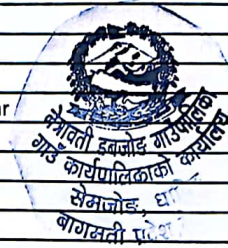 r
नेत्रावती डबजोङ गाउँपालिका
गाउँ कार्यपालिकाको कार्यालय
सेमजोङ, धा
बागमती प्रदेश